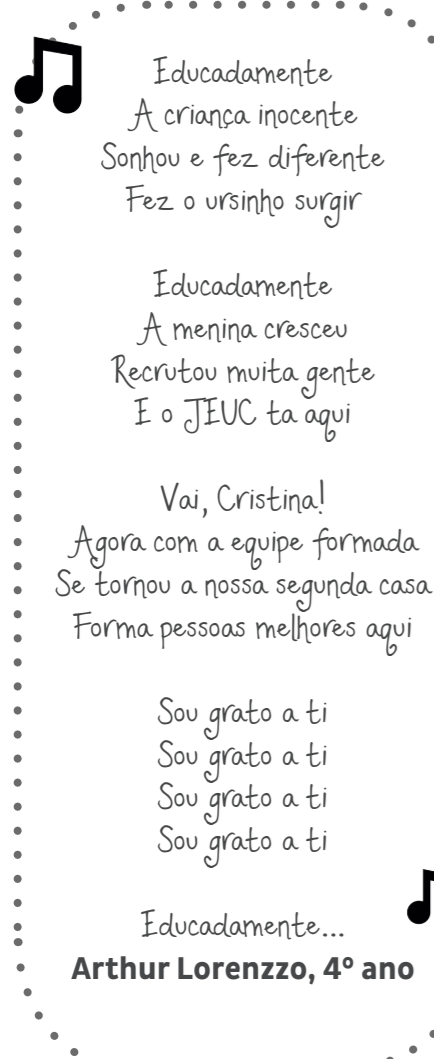 Educadamente
A criança inocente
Sonhou e fez diferente
Fez o ursinho surgir
Educadamente
A menina cresceu
Recrutou muita gente
E o JEUC ta aqui
Vai, Cristina!
Agora com a equipe formada
Se tornou a nossa segunda casa
Forma pessoas melhores aqui
Sou grato a ti
Sou grato a ti
Sou grato a ti
Sou grato a ti
Educadamente...
Arthur Lorenzzo, 4º ano